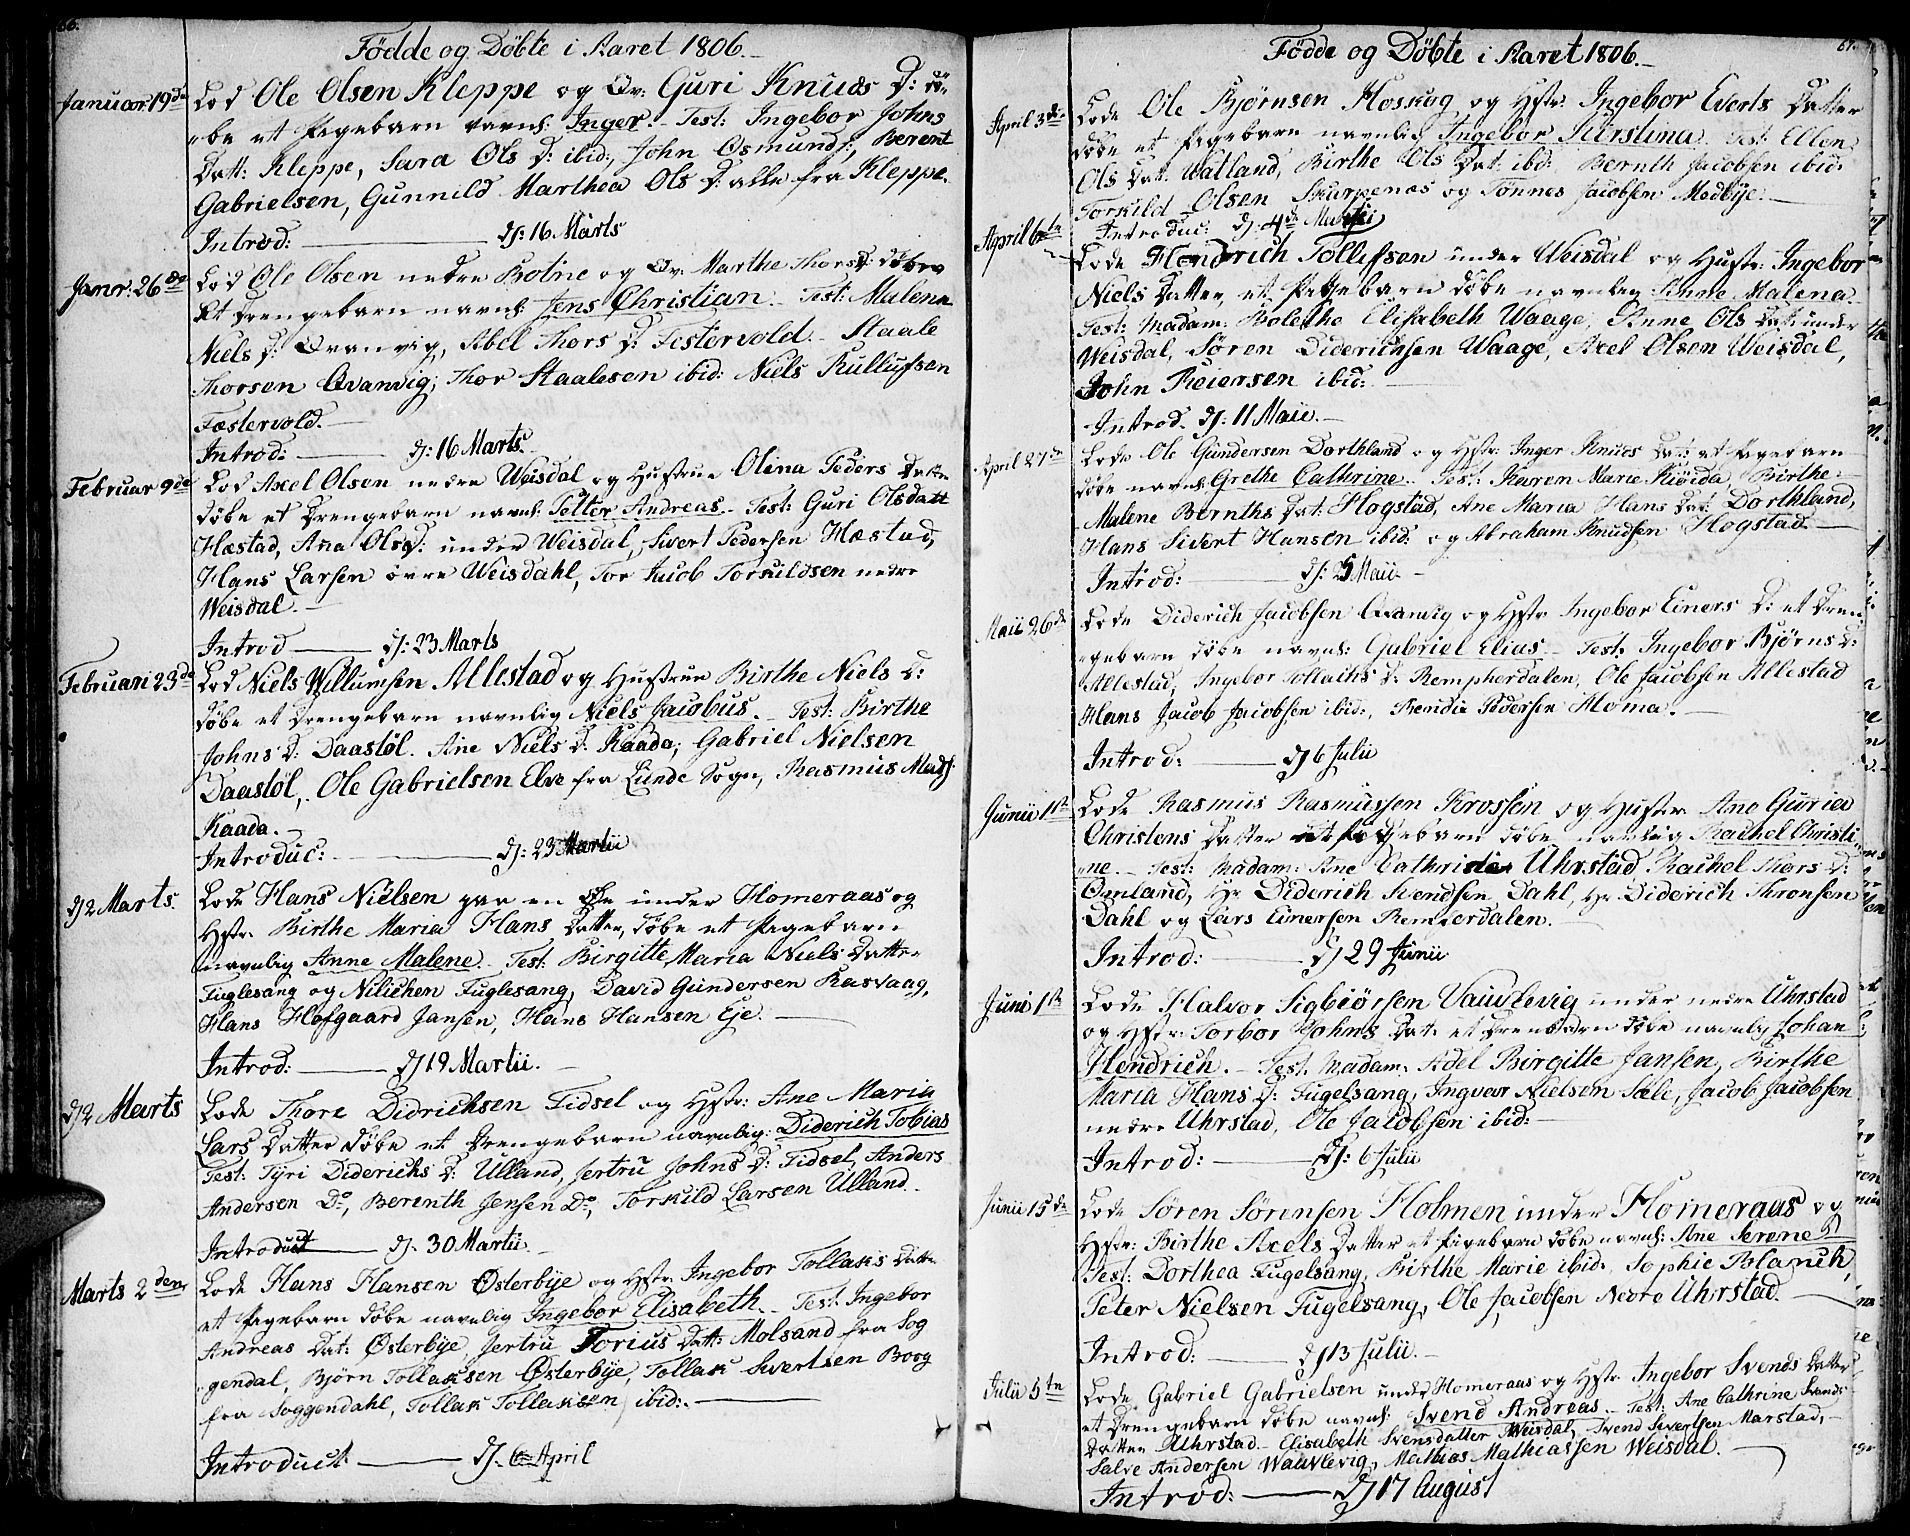 66.
Födde og Döbte i Aaret 1806.
Januar 19de Lod Ole Olsen Kleppe og Qv: Guri Knuds D: dö-
be et Pigebarn navnl: Inger. Test: Ingebor Johns
Datt: Kleppe, Sara Ols D: ibid:, John Osmunds:, Berent
Gabrielsen, Gunnild Marthea Ols D: alle fra Kleppe.
Introd: d: 16 Marts
Janr. 26de Lod Ole Olsen nedre Botne og Qv: Marthe Thors D: döbe
et Drengebarn navnl: Jens Christian. Test: Malena
Niels D: Qvanvig, Abel Thors D: Festervold. Staale
Thorsen Qvanvig, Thor Staalesen ibid: Niels Rullufsen
Fæstervold.
Introd: d: 16 Marts
Februar 9de Lod Axel Olsen nedre Weisdal og Hustrue Olina Peders Datter
döbe et Drengebarn navnl: Petter Andreas. Test: Guri Olsdatt
Hæstad, Ana Ols D: under Weisdal, Sivert Pedersen Hæstad,
Hans Larsen övre Weisdahl, Tor Jacob Torkildsen nedre
Weisdal.
Introd d: 23 Marts
Februari 23de Lod Niels Willumsen Allestad og Hustrue Birthe Niels D:
döbe et Drengebarn navnlig Niels Jacobus. Test: Birthe
Johns D: Daastöl. Ane Niels D: Kaada, Gabriel Nielsen
Daastöl, Ole Gabrielsen Elve fra Lunde Sogn, Rasmus Mads:
Kaada.
Introduc: d: 23 Martii
d 2 Marts. Lode Hans Nielsen paa en Öe under Homeraas og
Hstr. Birthe Maria Hans Datter, döbe et Pigebarn
navnlig Anne Malene. Test: Birgitte Maria Niels Datter
Fuglesang og Nilichen Fuglesang, David Gundersen Rasvaag,
Hans Hofgaard Jansen, Hans Hansen Eje.
Introd: d 19 Martii.
d 2 Marts Lode Thore Didrichsen Fidsel og Hstr: Ane Maria
Lars Datter döbe et Drengebarn navnlig: Diderich Tobias
Test: Tyri Diderichs D: Ulland, Jertru Johns D: Fidsel, Anders
Andersen Do, Berenth Jensen Do, Torkild Larsen Ulland.
Introduct d. 30 Martii.
Marts 2den Lode Hans Hansen Österbÿe og Hstr: Ingebor Tollaks Datter
et Pigebarn döbe navnlig Ingebor Elisabeth. Test. Ingebor
Andreas Dat: Österbÿe, Jertru Torius Datt: Molsand fra Sog
gendal, Bjørn Tollaksen Österbÿe, Tollak Sivertsen Borg
fra Soggendahl, Tollak Tollaksen ibid:
Introduct d. 6te April
67.
Födde og Döbte i Aaret 1806.
April 3de Lode Ole Bjørnsen Mossug og Hstr. Ingebor Everts Datter
döbe et Pigebarn navnlig Ingebor Kirstina. Test: Ellen
Ols Dat: Watland, Birthe Ols Dat: ibid: Bernth Jacobsen ibid:
Torkild Olsen Skarpenæs og Tønnes Jacobsen Medbÿe.
Introduc: d: 4de Maii
April 6te Lode Hendrich Tollifsen under Weisdal og Hustr: Ingebor
Niels Datter, et Pigebarn döbe navnlig Anne Malena.
Test: Madam: Bolethe Elisabeth Waage, Anne Ols Dat: under
Weisdal, Søren Diderichsen Waage, Axel Olsen Weisdal,
John Reiersen ibid:
Introd. d: 11 Maii.
April 27de Lode Ole Gundersen Dorthland og Hstr: Inger Knuds Dat: et Pigebarn
döbe navnl: Grethe Cathrine. Test: Karen Marie Kiöida, Birthe
Malene Bernths Dat: Hogstad, Ane Maria Hans Dat: Dorthland,
Hans Sivert Hansen ibid: og Abraham Knudsen Hogstad.
Introd: d: 25 Maii.
Maii 26de Lode Diderich Jacobsen Qvanvig og Hstr Ingebor Einers D: et Dren-
gebarn döbe navnl: Gabriel Elias. Test: Ingebor Bjørns D:
Allestad, Ingebor Tollachs D: Remperdalen, Ole Jacobsen Allestad
Hans Jacob Jacobsen ibid:, Pedersen Homa.
Introd: d 6 Julii
Junii 1te Lode Rasmus Rasmussen Krossen og Hustr. Ane Guriea
Christens Datter et Pigebarn döbe navnlig Rachel Christi
ne. Test: Madam: Ane Cathrine Uhrstad, Rachel Thors D:
Omland, Hr Diderich Svendsen Dahl, Hr Diderich Thronsen
Dahl og Lars Einersen Remperdalen.
Introd: d 29 Junii
Juni 1te Lode Halvor Sigbiörsen Vauvlevig under nedre Uhrstad
og Hstr: Torbor Johns Dat: et Drenbarn döbe navnlig Johan
Hendrich. Test. Madam: Adel Birgitte Jansen, Birthe
Maria Hans D: Fugelsang, Ingvar Nielsen Sæle, Jacob Jacobsen
nedre Uhrstad, Ole Jacobsen ibid:
Introd: d: 6 Julii
Junii 15de Lode Sören Sörensen Holmen under Homeraas og
Hstr: Birthe Axels Datter et Pigebarn döbe navnl: Ane Serene
Test: Dorthea Fugelsang, Birthe Marie ibid:, Sophie Blanch,
Peter Nielsen Fugelsang, Ole Jacobsen Nedre Uhrstad.
Introd: d 13 Julii.
Julii 5te Lode Gabriel Gabrielsen under Homeraas og Hstr Ingebor Svends Datter
et Drengebarn döbe navnl: Svend Andreas. Test: Ane Cathrine Svends
Datter Uhrstad. Elisabeth Svensdatter Weisdal, Svend Sivertsen Marstad,
Salve Andersen Wauvlevig, Mathias Mathiassen Weisdal.
Introd: d 17 August